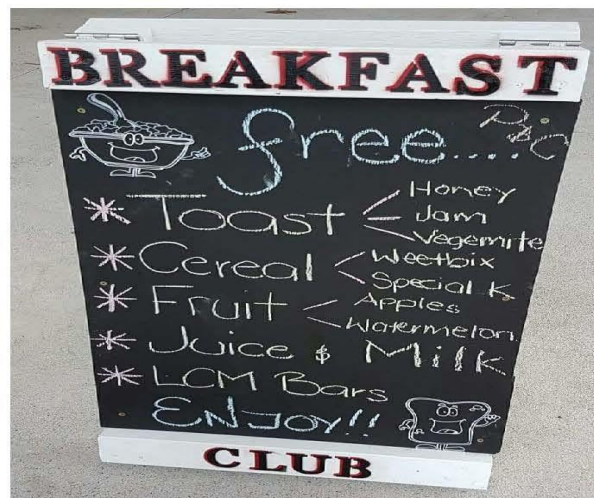 BREAKFAST
P&C
free....
* Toast
Honey
Jam
Vegemite
* Cereal
Weetbix
Special K
* Fruit
Apples
Watermelon
* Juice & Milk
* LCM Bars
ENJOY!!
CLUB